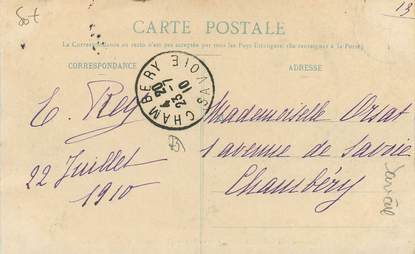 CARTE POSTALE
La Correspondance au recto n'est pas acceptée par tous les Pays Etrangers (Se renseigner à la Poste)
CORRESPONDANCE
ADRESSE
CHAMBERY SAVOIE
23 -7
10
E. Rey
22 Juillet
1910
Mademoiselle Orsat
1 avenue de Savoie
Chambéry
13